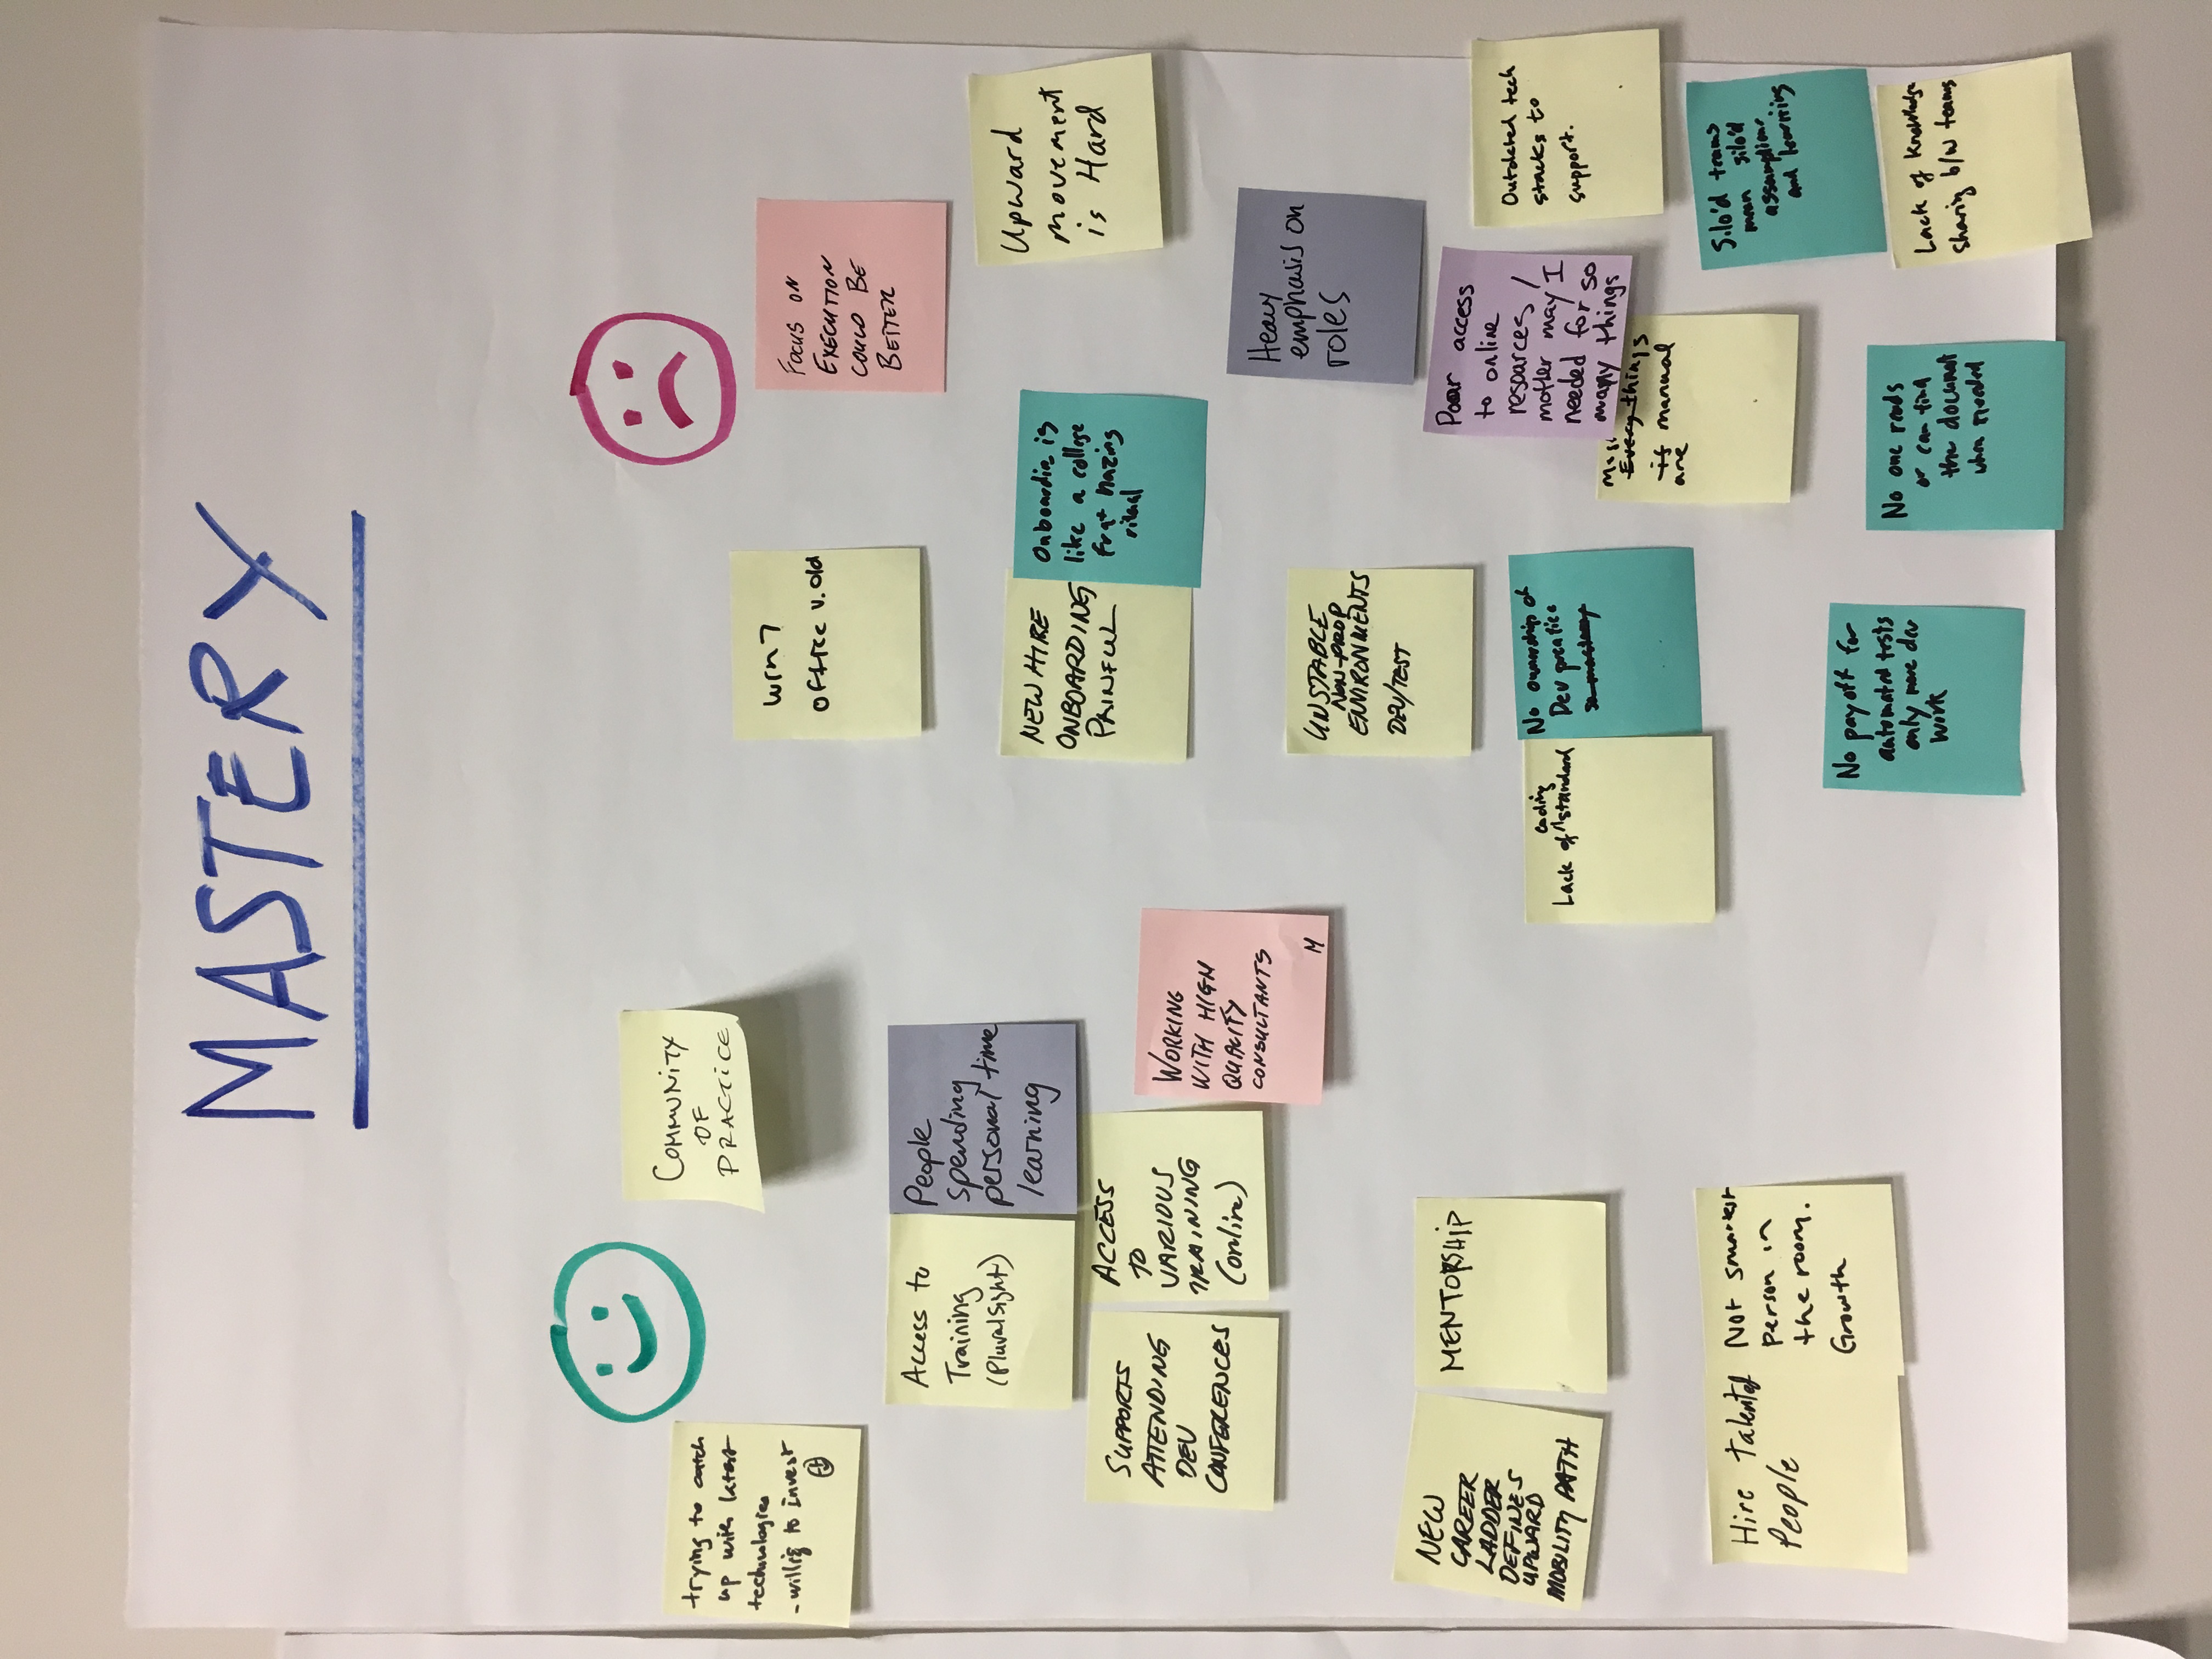 MASTERY
trying to catch
up with latest
technologies
- willig to invest
COMMUNITY
OF
PRACTICE
Access to
Training
(Pluralsight)
People
spending
personal time
learning
SUPPORTS
ATTENDING
DEV
CONFERENCES
ACCESS
TO
VARIOUS
TRAINING
(online)
WORKING
WITH HIGH
QUALITY
CONSULTANTS
M
NEW
CAREER
LADDER
DEFINES
UPWARD
MOBILITY PATH
MENTORSHIP
Hire talented
People
Not smartest
person in
the room.
Growth
win 7
office v. old
FOCUS ON
EXECUTION
COULD BE
BETTER
NEW HIRE
ONBOARDING
PAINFUL
Onboardin is
like a college
frat hazing
ritual
Upward
movement
is Hard
Heavy
emphasis on
roles
UNSTABLE
NON-PROD
ENVIRONMENTS
DEV/TEST
Poor access
to online
resources /
mother may I
needed for so
many things
Outdated tech
stacks to
support.
coding
Lack of standard
No ownership of
Dev practice
so mastery
Every things
is manual
are
Silo'd teams
mean silo'd
assumptions
and learning
No payoff for
automated tests
only more dev
work
No one reads
or can find
the document
when needed
Lack of knowledge
sharing b/w teams